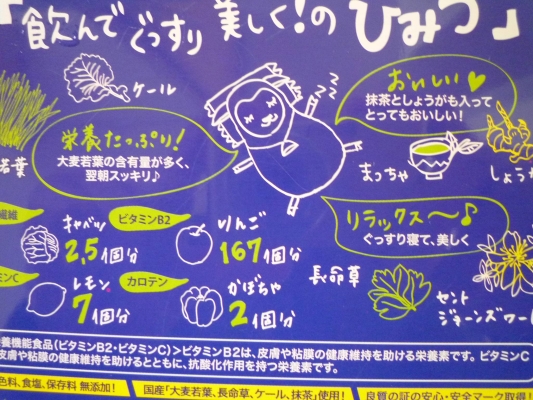 「飲んでぐっすり 美しく!の ひみつ」
ケール
おいしい
抹茶としょうがも入って
とってもおいしい!
栄養たっぷり!
大麦若葉の含有量が多く、
翌朝スッキリ♪
若葉
まっちゃ
しょうが
繊維
キャベツ
2.5個分
ビタミンB2
りんご
167個分
リラックス〜♪
ぐっすり寝て、美しく
ミンC
レモン
7個分
カロテン
かぼちゃ
2個分
長命草
セント
ジョーンズワー
養機能食品(ビタミンB2・ビタミンC)>ビタミンB2は、皮膚や粘膜の健康維持を助ける栄養素です。ビタミンC
皮膚や粘膜の健康維持を助けるとともに、抗酸化作用を持つ栄養素です。
色料、食塩、保存料 無添加!
国産「大麦若葉、長命草、ケール、抹茶」使用!
良質の証の安心・安全マーク取得!